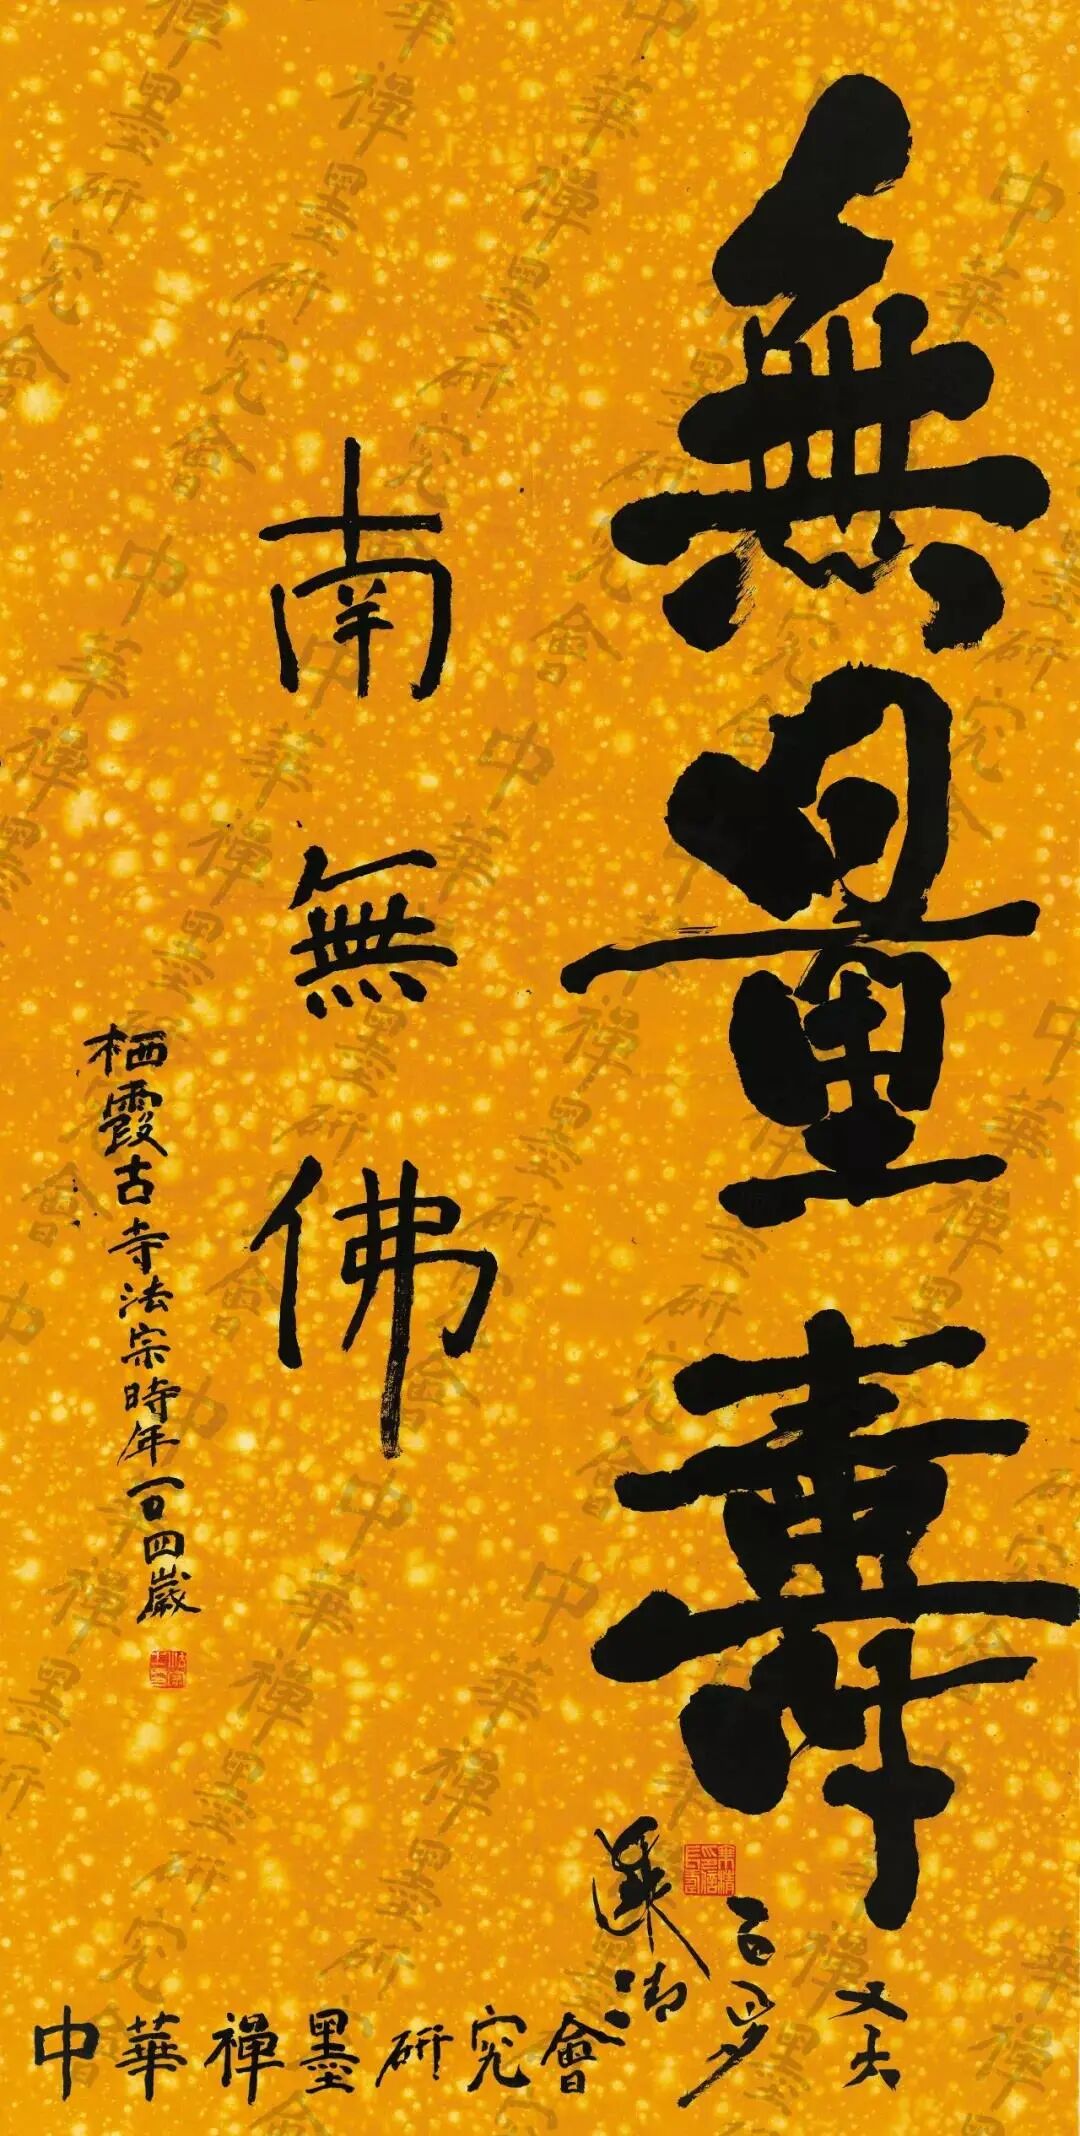 無量壽
南無佛
栖霞古寺法宗時年一〇四歲
中華禪墨研究會